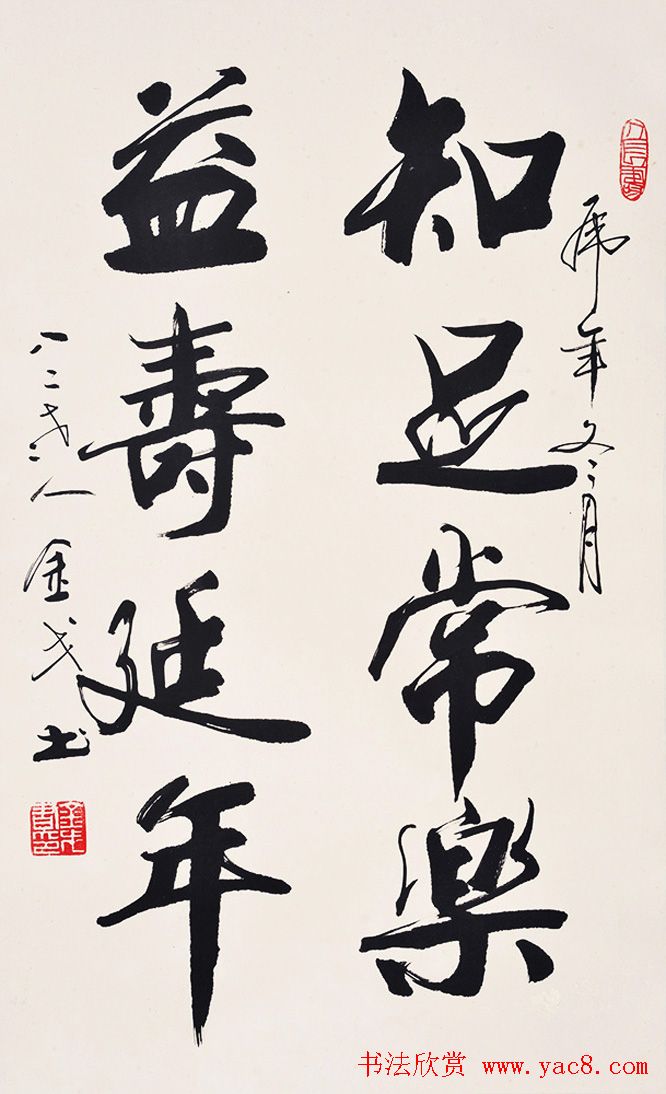 虎年冬月
知足常樂
益壽延年
八二老人金戈书
书法欣赏 www.yac8.com